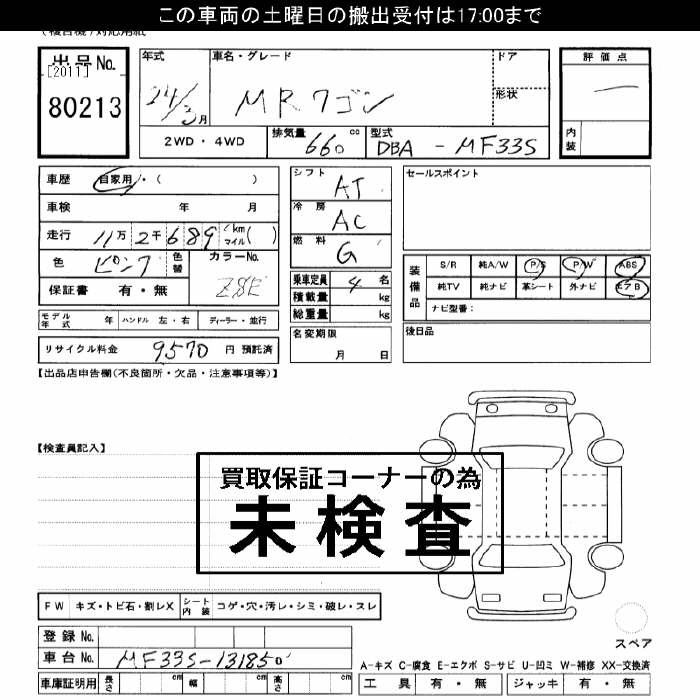 この車両の土曜日の搬出受付は17:00まで
出品No.
[2011]
80213
年式
24/3月
車名・グレード
MRワゴン
ドア
形状
評価点
内装
2WD・4WD
排気量
660 cc
型式
DBA - MF33S
車歴 自家用・( )
車検 年 月
走行 11万2千689 km マイル( )
色 ピンク
色替
カラーNo.
保証書 有・無
モデル年式 年
ハンドル 左・右
ディーラー・並行
リサイクル料金 9570 円 預託済
シフト
AT
冷房
AC
燃料
G
乗車定員 4 名
積載量 kg
総重量 kg
名変期限
月 日
セールスポイント
装備品
S/R 純A/W P/S P/W ABS
純TV 純ナビ 革シート 外ナビ エアB
ナビ型番:
後日品
【出品店申告欄(不良箇所・欠品・注意事項等)】
【検査員記入】
買取保証コーナーの為
未検査
FW キズ・トビ石・割レX
シート内装 コゲ・穴・汚レ・シミ・破レ・スレ
登録No.
車台No. MF33S-131850
車庫証明用 長さ cm 幅 cm 高さ cm
スペア
A-キズ C-腐食 E-エクボ S-サビ U-凹ミ W-補修 XX-交換済
工具 有・無 ジャッキ 有・無